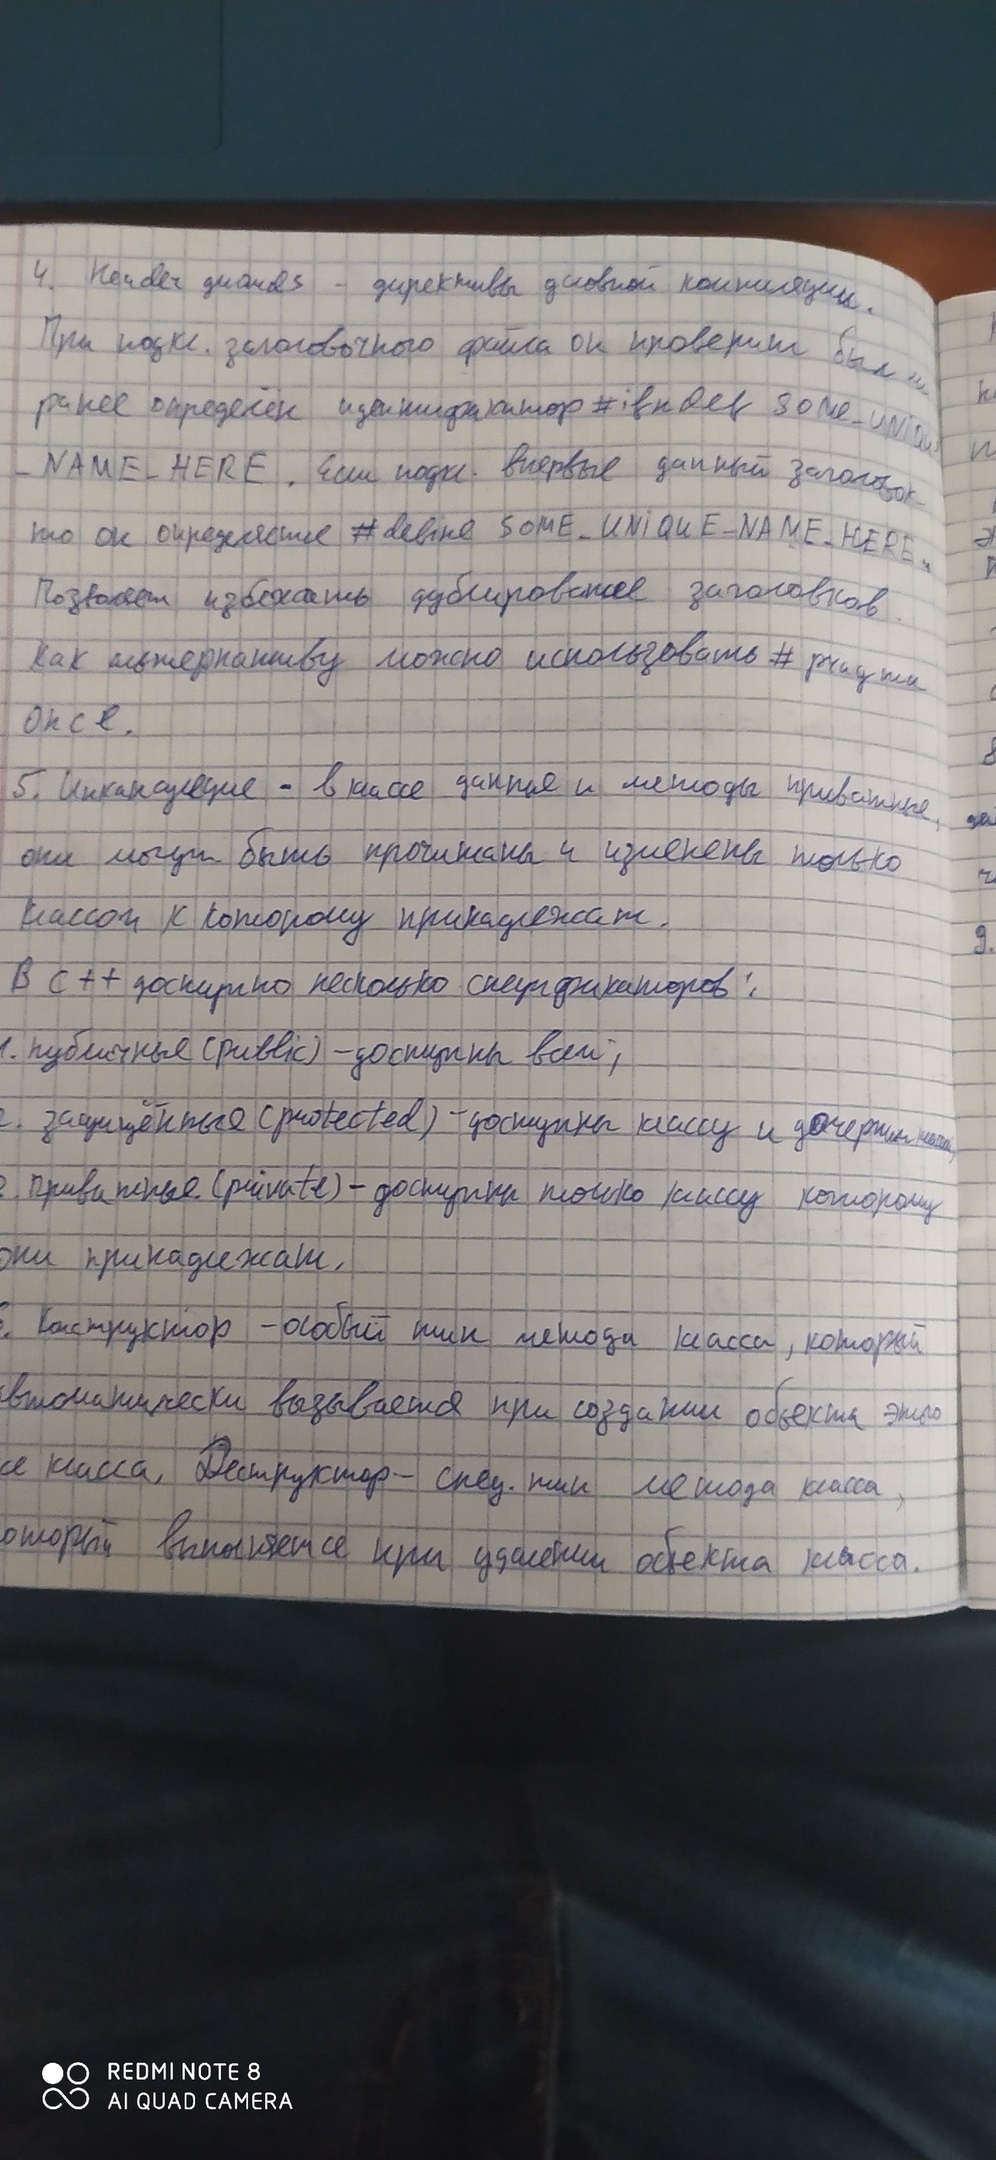 4. Header guards - директивы условной компиляции.
При подкл. заголовочного файла он проверит был ли
ранее определён идентификатор #ifndef SOME_UNIQUE
_NAME_HERE. Если подкл. впервые данный заголовок
то он определяется #define SOME_UNIQUE_NAME_HERE.
Позволяет избежать дублирование заголовков.
Как альтернативу можно использовать # pragma
once.
5. Инкапсуляция - в классе данные и методы приватные,
они могут быть прочитаны и изменены только
классом к которому принадлежат.
В C++ доступно несколько спецификаторов:
1. публичные (public) - доступны всем;
2. защищённые (protected) - доступны классу и дочерним
приватные (private) - доступны только классу которому
они принадлежат.
6. Конструктор - особый тип метода класса, который
автоматически вызывается при создании объекта этого
же класса. Деструктор - спец. тип метода класса,
который выполняется при удалении объекта класса.
9.
REDMI NOTE 8
AI QUAD CAMERA